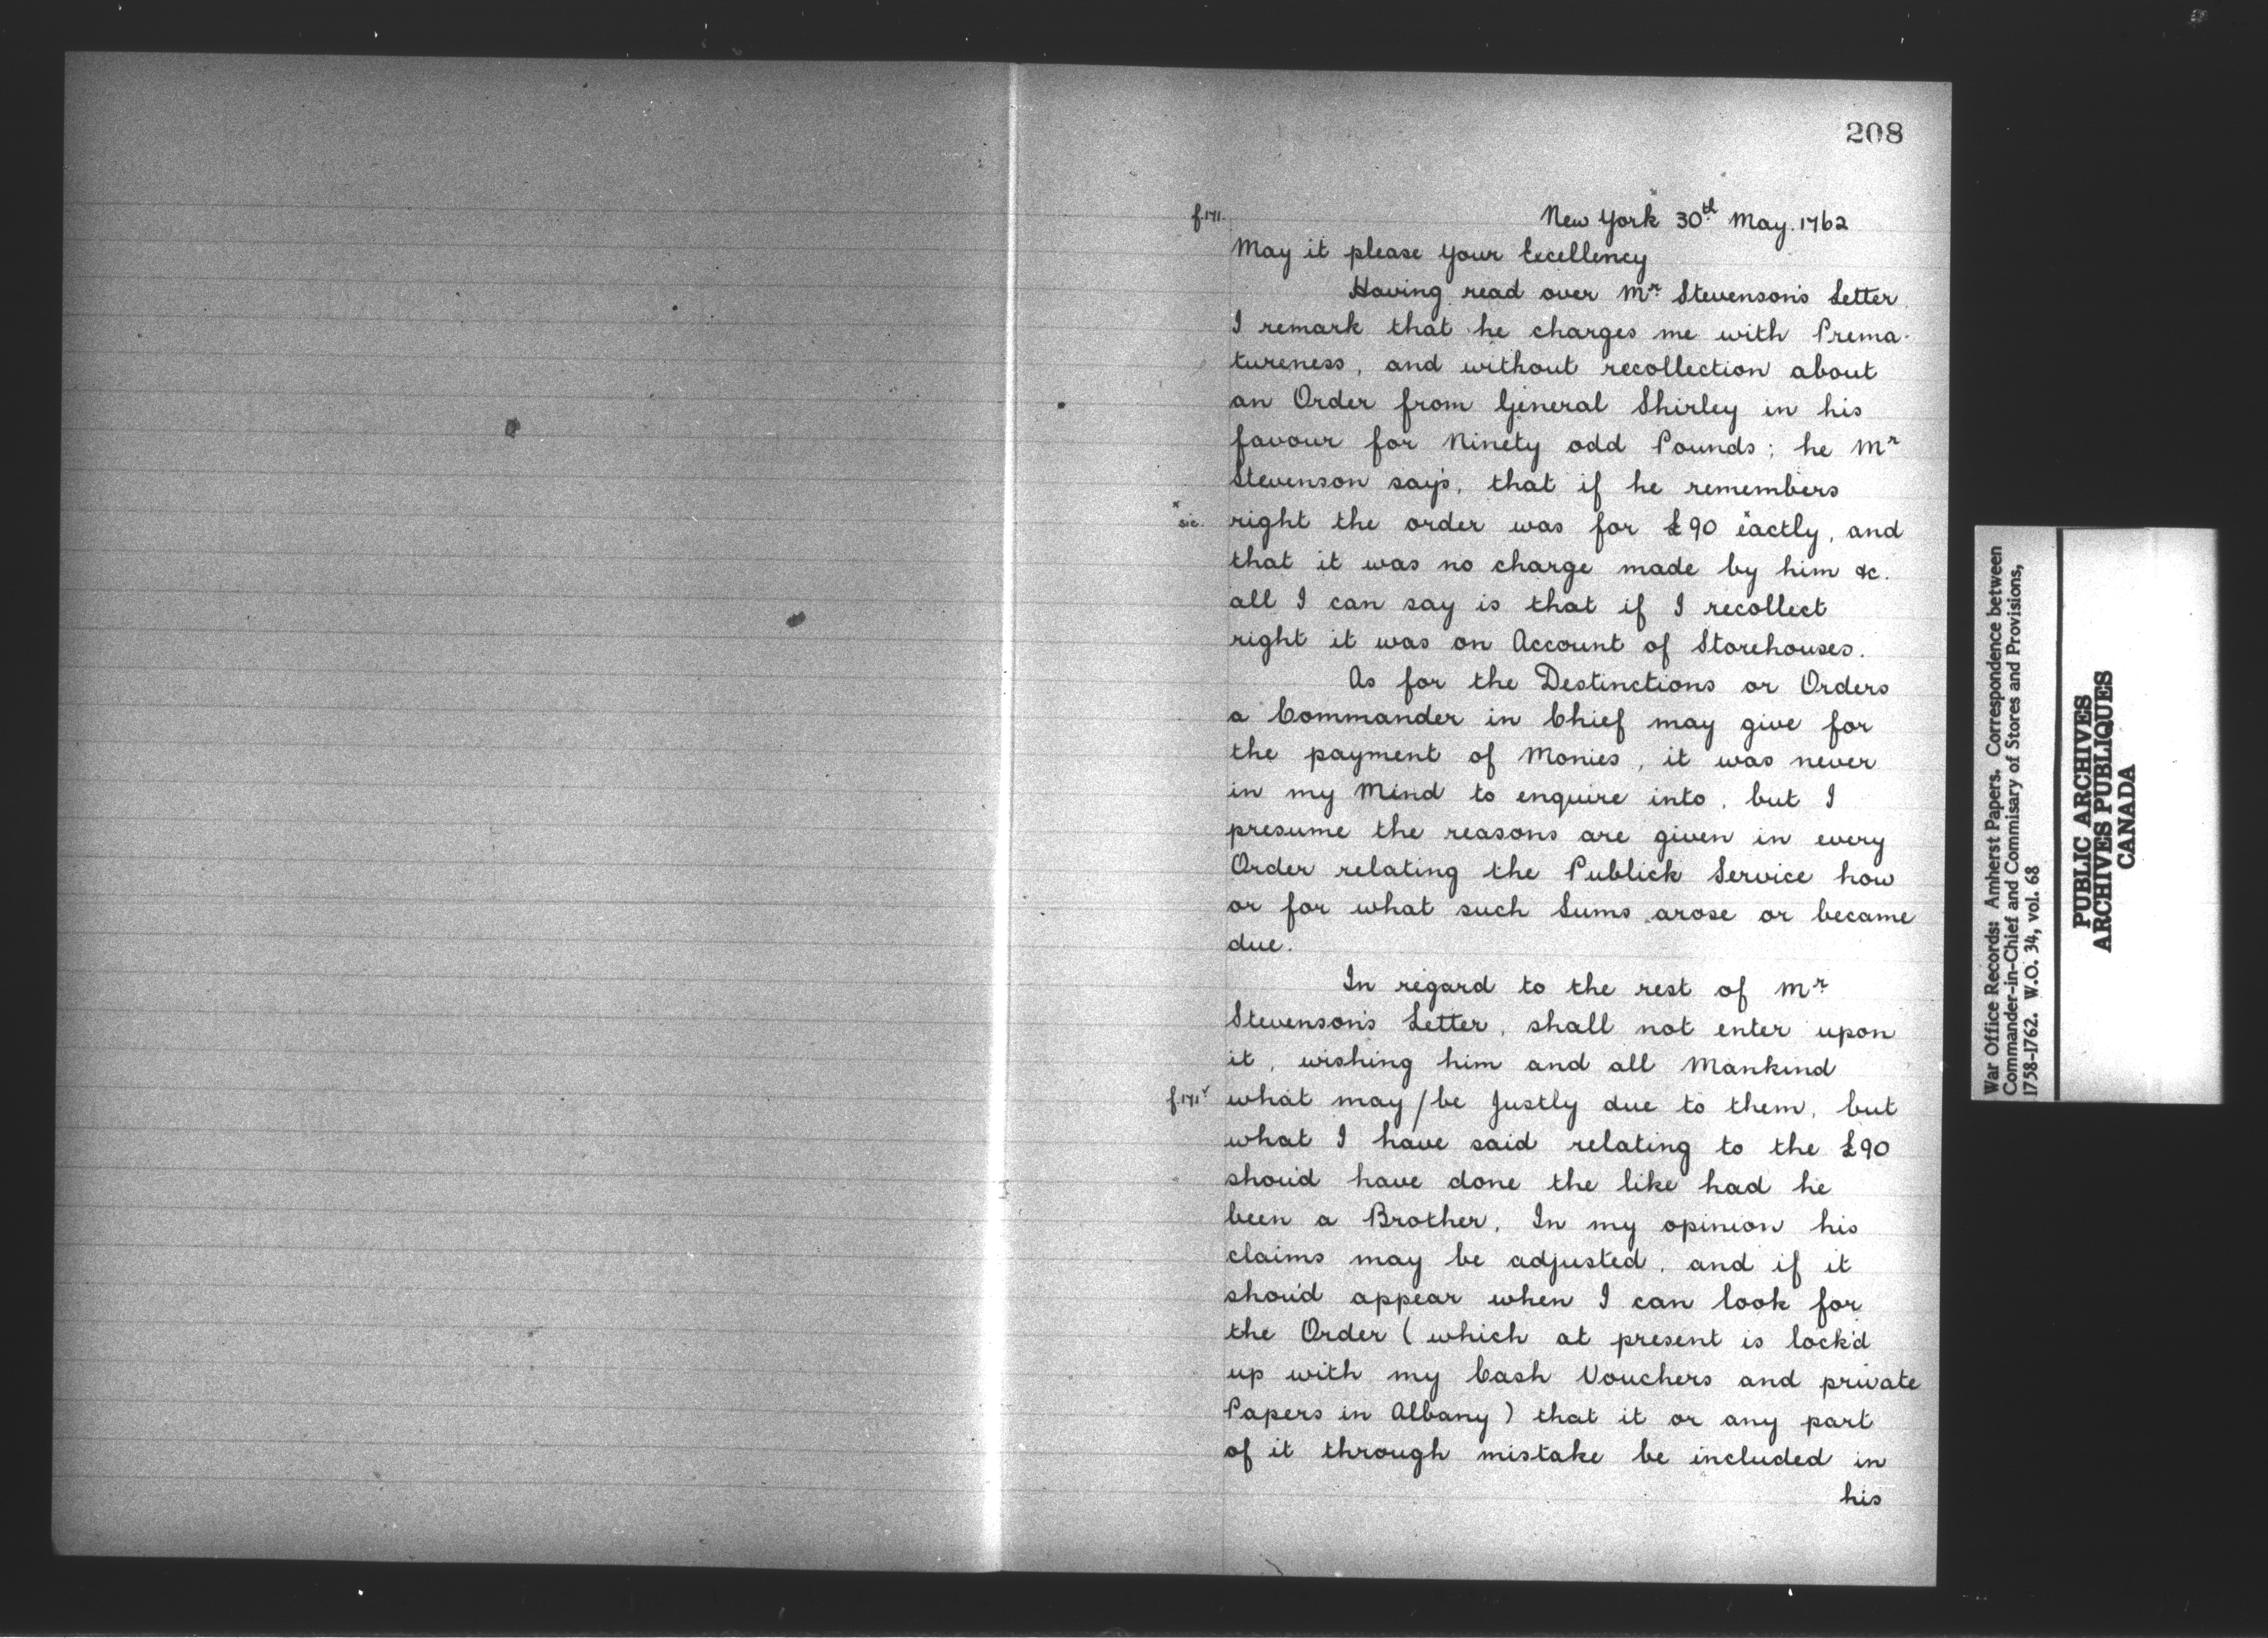 208
f.171.
New York 30th May. 1762
May it please your Excellency
Having read over Mr Stevenson's Letter
I remark that he charges me with Prema-
tureness, and without recollection about
an Order from General Shirley in his
favour for Ninety odd Pounds; he Mr
Stevenson say's, that if he remembers
* sic. right the order was for £90 *eactly, and
that it was no charge made by him &c.
all I can say is that if I recollect
right it was on Account of Storehouses.
As for the Destinctions or Orders
a Commander in Chief may give for
the payment of Monies, it was never
in my Mind to enquire into, but I
presume the reasons are given in every
Order relating the Publick Service how
or for what such Sums arose or became
due.
In regard to the rest of Mr
Stevenson's Letter, shall not enter upon
it, wishing him and all Mankind
f.171v what may/be Justly due to them, but
what I have said relating to the £90
shou'd have done the like had he
been a Brother, In my opinion his
claims may be adjusted, and if it
shou'd appear when I can look for
the Order (which at present is lock'd
up with my Cash Vouchers and private
Papers in Albany) that it or any part
of it through mistake be included in
his
War Office Records: Amherst Papers. Correspondence between
Commander-in-Chief and Commisary of Stores and Provisions,
1758-1762. W.O. 34, vol. 68
PUBLIC ARCHIVES
ARCHIVES PUBLIQUES
CANADA